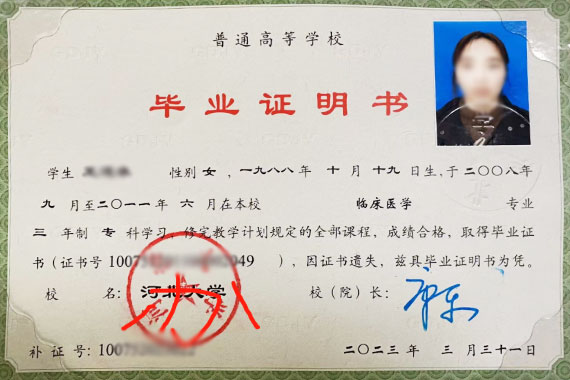 普通高等学校
毕业证明书
学生 性别 女 ，一九八八年 十 月 十九 日生，于二〇〇八年
九 月至二〇一一年 六 月在本校 临床医学 专业
三 年制 专 科学习，修完教学计划规定的全部课程，成绩合格，取得毕业证
书（证书号 1007 049 ），因证书遗失，兹具毕业证明书为凭。
校 名：河北大学 校（院）长：
补 证 号：100 二〇二三 年 三 月 三十一 日